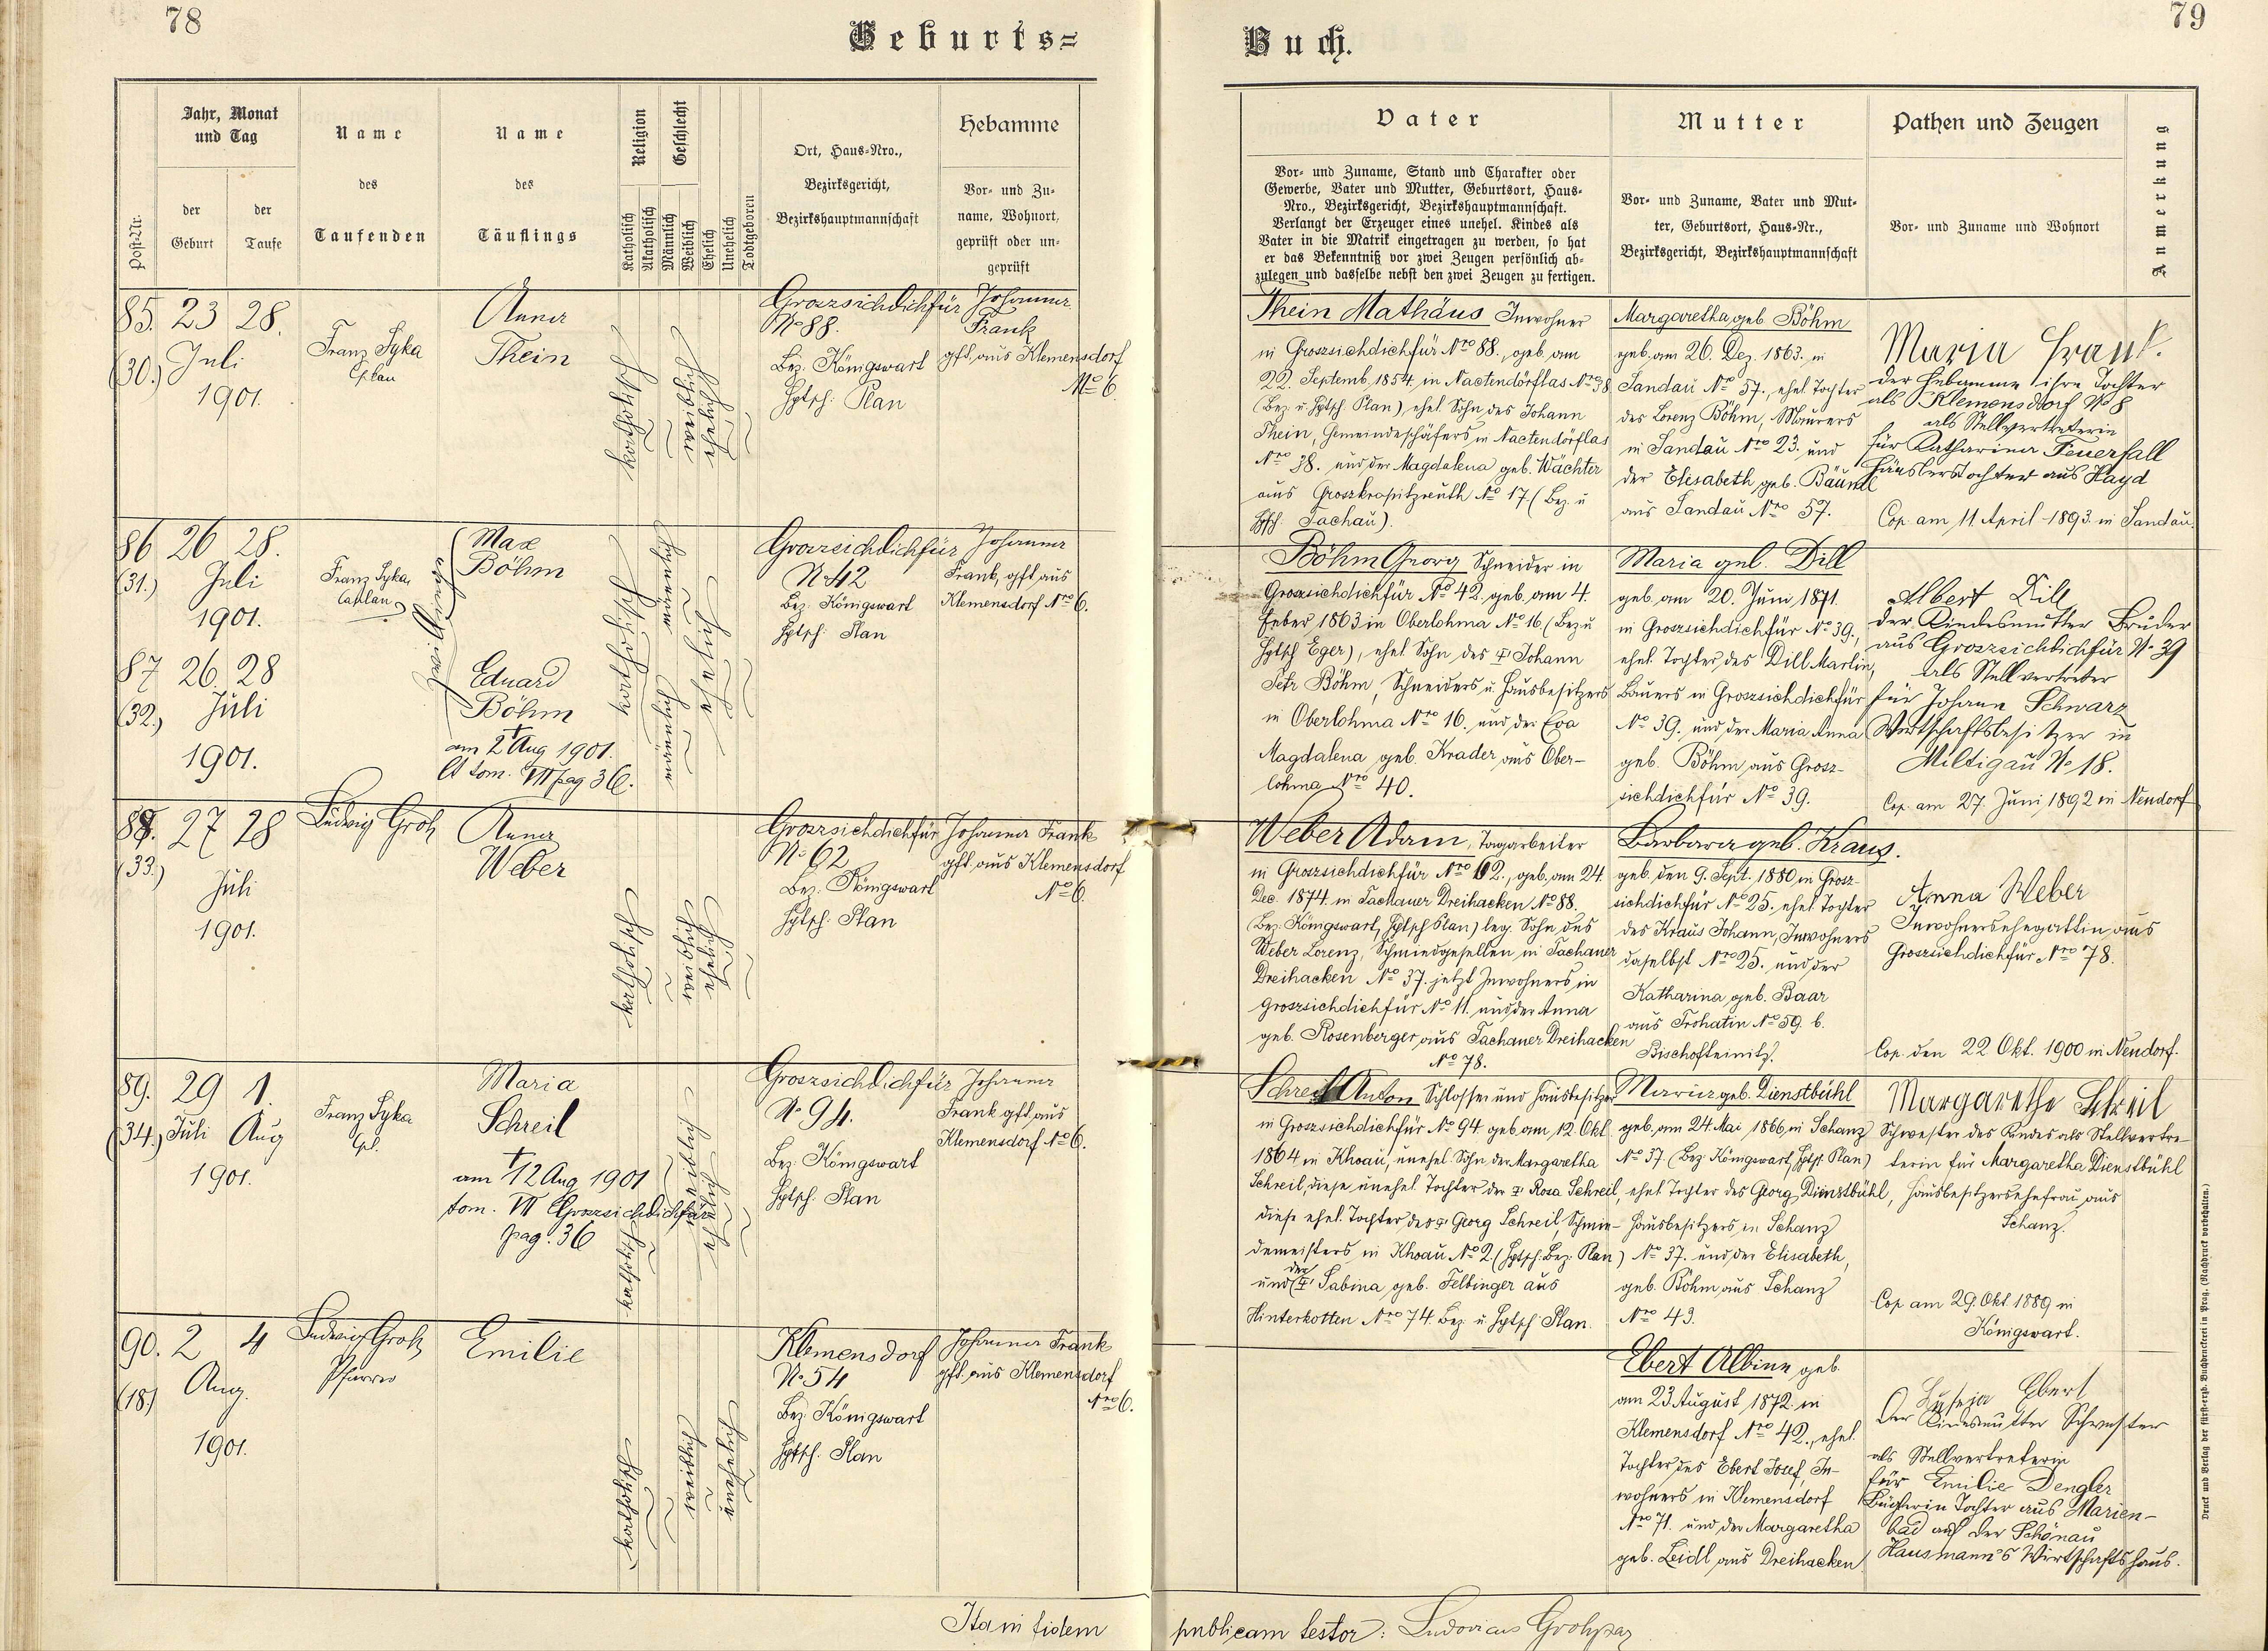 78
Geburts=
Jahr, Monat
und Tag
Post-Nr.
der
Geburt
der
Taufe
Name
des
Taufenden
Name
des
Täuflings
Religion
Katholisch
Akatholisch
Geschlecht
Männlich
Weiblich
Ehelich
Unehelich
Todtgeboren
Ort, Haus-Nro.,
Bezirksgericht,
Bezirkshauptmannschaft
Hebamme
Vor- und Zu-
name, Wohnort,
geprüft oder un-
geprüft
85. 23 28.
(30.) Juli
1901.
Franz Syka
Cplan
Anna
Thein
katholisch
weiblich
ehelich
Groszsichdichfür
No 88.
Bez. Königswart
Hptsch: Plan
Johanna
Frank
gft. aus Klemensdorf
No 6.
86 26 28.
(31.) Juli
1901.
Franz Syka,
Caplan
Max
Böhm
87 26. 28
(32.) Juli
1901.
Eduard
Böhm
† am 2 Aug 1901.
lt tom. VII pag 36.
katholisch
männlich
männlich
ehelich
Groszsichdichfür
No 42
Bez. Königswart
Hptsch: Plan
Johanna
Frank, gft aus
Klemensdorf No 6.
88. 27 28
(33.)
Juli
1901.
Ludwig Groh
Anna
Weber
katholisch
weiblich
ehelich
Groszsichdichfür
No 62
Bez. Königswart
Hptsch: Plan
Johanna Frank
gft. aus Klemensdorf
No 6.
89. 29 1.
(34.) Juli Aug
1901.
Franz Syka
Cpl.
Maria
Schreil
† am 12 Aug 1901
tom. VII Groszsichdichfür
pag. 36
katholisch
weiblich
ehelich
Groszsichdichfür
No 94.
Bez: Königswart
Hptsch: Plan
Johanna
Frank gft aus
Klemensdorf No 6.
90. 2 4
(18) Aug.
1901.
Ludwig Groh
Pfarrer
Emilie
katholisch
weiblich
unehelich
Klemensdorf
No 54
Bez: Königswart
Hptsch: Plan
Johanna Frank
gft. aus Klemensdorf
Nro 6.
Ita in fidem
79
Buch.
Vater
Vor- und Zuname, Stand und Charakter oder
Gewerbe, Vater und Mutter, Geburtsort, Haus-
Nro., Bezirksgericht, Bezirkshauptmannschaft.
Verlangt der Erzeuger eines unehel. Kindes als
Vater in die Matrik eingetragen zu werden, so hat
er das Bekenntniß vor zwei Zeugen persönlich ab-
zulegen und dasselbe nebst den zwei Zeugen zu fertigen.
Mutter
Vor- und Zuname, Vater und Mut-
ter, Geburtsort, Haus-Nr.,
Bezirksgericht, Bezirkshauptmannschaft
Pathen und Zeugen
Vor- und Zuname und Wohnort
Anmerkung
Thein Mathäus Inwohner
in Groszsichdichfür Nro 88., geb. am
22. Septemb. 1854. in Nactendörflas Nro 38
(Bez. u. Hptsch. Plan) ehel. Sohn des Johann
Thein, Gemeindeschäfers in Nactendörflas
Nro 38. und der Magdalena geb. Wächter
aus Groszkropitzreuth No 17. (Bez. u
Hptsch: Tachau).
Margaretha geb. Böhm
geb. am 26. Dez. 1863. in
Sandau No 57., ehel. Tochter
des Lorenz Böhm, Maurers
in Sandau Nro 23. und
der Elisabeth geb. Bäuml
aus Sandau Nro 57.
Maria Frank.
der Hebamme ihre Tochter
als Klemensdorf No 8
als Stellvertreterin
für Katharina Feuerfall
Häuslerstochter aus Hayd
Cop. am 11 April 1893. in Sandau.
Böhm Georg Schneider in
Groszsichdichfür No 42. geb. am 4.
Feber 1863 in Oberlohma No 16 (Bez u
Hptsch Eger), ehel Sohn des † Johann
Petr Böhm, Schneiders u. Hausbesitzers
in Oberlohma Nro 16. und der Eva
Magdalena geb. Krader aus Ober-
lohma Nro 40.
Maria geb. Dill
geb. am 20. Juni 1871.
in Groszsichdichfür No 39.,
ehel. Tochter des Dill Martin,
Bauers in Groszsichdichfür
No 39. und der Maria Anna
geb. Böhm aus Grosz-
sichdichfür No 39.
Albert Dill
der Kindesmutter Bruder
aus Groszsichdichfür No 39
als Stellvertreter
für Johann Schwarz
Wirtschaftsbesitzer in
Miltigau No 18.
Cop. am 27. Juni 1892 in Neudorf
Weber Adam, Tagarbeiter
in Groszsichdichfür Nro 62., geb. am 24.
Dec. 1874. in Tachauer Dreihacken No 88.
(Bez. Königswart, Hptsch Plan) leg. Sohn des
Weber Lorenz, Schmiedgesellen in Tachauer
Dreihacken No 37. jetzt Inwohners in
Groszsichdichfür No 11. und der Anna
geb. Rosenberger aus Tachauer Dreihacken
No 78.
Barbara geb. Kraus.
geb. den 9. Sept. 1880 in Grosz-
sichdichfür No 25. ehel. Tochter
des Kraus Johann, Inwohners
daselbst Nro 25. und der
Katharina geb. Baar
aus Trohatin No 59. b.
Bischofteinitz.
Anna Weber
Inwohnersehegattin aus
Groszsichdichfür Nro 78.
Cop. den 22 Okt. 1900 in Neudorf.
Schreil Anton Schlosser und Hausbesitzer
in Groszsichdichfür No 94 geb. am 12. Okt.
1864 in Khoau, unehel. Sohn der Margaretha
Schreil, diese unehel Tochter der † Rosa Schreil,
diese ehel. Tochter des † Georg Schreil, Schmie-
demeisters in Khoau No 2. (Hptsch: Bez: Plan)
und der † Sabina geb. Felbinger aus
Hinterkotten Nro 74. Bez. u. Hptsch Plan.
Maria geb. Dienstbühl
geb. am 24. Mai 1866 in Schanz
No 37 (Bez: Königswart, Hptsch. Plan)
ehel. Tochter des Georg Dienstbühl,
Hausbesitzers in Schanz
No 37. und der Elisabeth,
geb. Böhm aus Schanz
Nro 43.
Margarethe Schreil
Schwester des Kindes als Stellvertre-
terin für Margaretha Dienstbühl
Hausbesitzersehefrau aus
Schanz.
Cop. am 29. Okt 1889 in
Königswart.
Ebert Albine geb.
am 23 August 1872. in
Klemensdorf Nro 42., ehel.
Tochter des Ebert Josef, In-
wohners in Klemensdorf
Nro 71. und der Margaretha
geb. Leidl aus Dreihacken
Ebert
Der Kindesmutter Schwester
als Stellvertreterin
für Emilie Dengler
Tochter aus Marien-
bad auf der Schönau
Hausmann's Wirtschaftshaus.
publicam testor: Ludovicus Groh
Druck und Verlag der fürst-erzb. Buchdruckerei in Prag. (Nachdruck vorbehalten.)